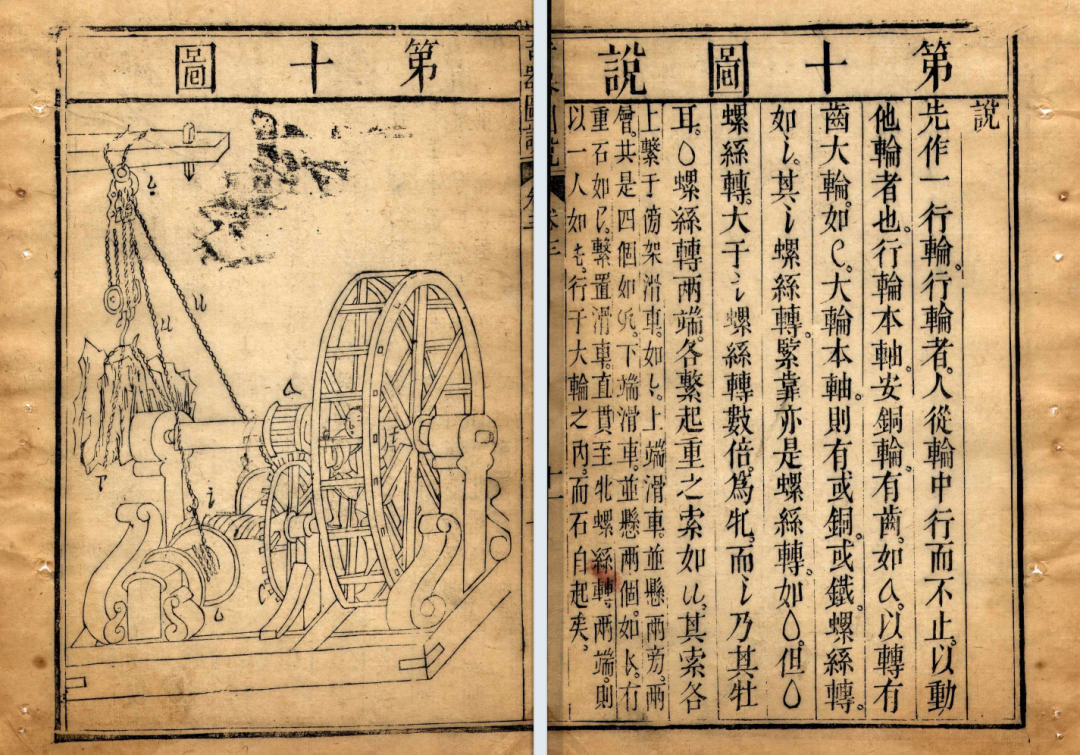 第十圖說
說
先作一行輪。行輪者。人從輪中行而不止。以動
他輪者也。行輪本軸。安銅輪。有齒。如 。以轉有
齒大輪。如 。大輪本軸。則有或銅。或鐵。螺絲轉。
如 。其 螺絲轉。緊靠亦是螺絲轉。如 。但
螺絲轉。大于 螺絲轉數倍。爲牝。而 乃其牡
耳。 螺絲轉兩端。各繫起重之索如 。其索各
上繫于傍架滑車。如 。上端滑車。並懸兩旁。兩
共是四個如 。下端滑車。並懸兩個。如 。有
重石如 。繫置滑車。直貫至牝螺絲轉。兩端。則
以一人如 。行于大輪之內。而石自起矣。
奇器圖說
卷三
十一
第十圖